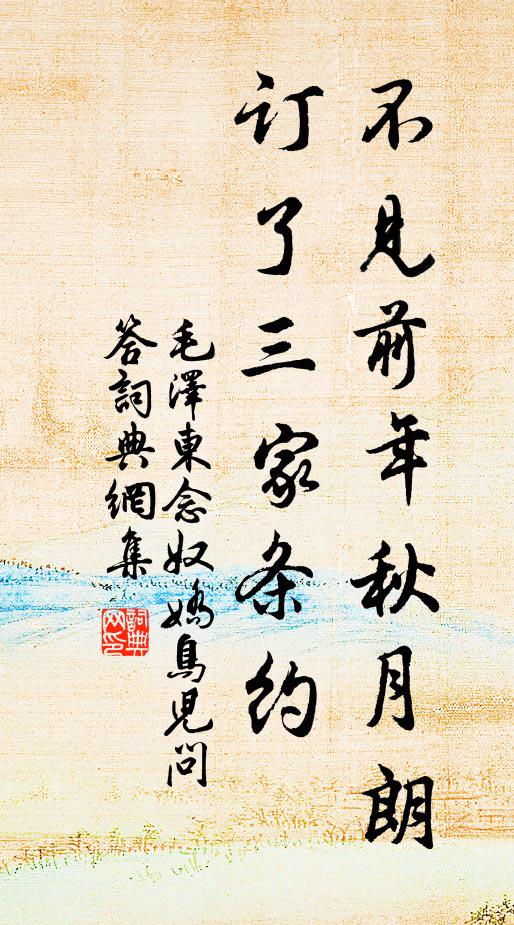 不见前年秋月朗
订了三家条约
毛澤東念奴嬌鳥児問
答詞典網集
詞典
网印